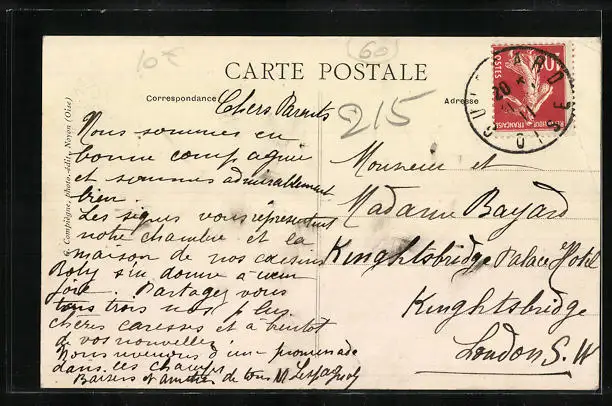 10€
(60)
CARTE POSTALE
Correspondance
Adresse
215
G. Compiègne, photo-édit., Noyon (Oise)
10
POSTES
RÉPUBLIQUE FRANÇAISE
GUISCARD
OISE
20
Chers Parents
Nous sommes en
bonne compagnie
et sommes admirablement
bien.
Les signes vous représentent
notre chambre et la
maison de nos cousins
s'en donne a cœur
joie. Partagez vous
tous trois nos plus
chères caresses et a bientot
de vos nouvelles
Nous revenons d'une promenade
dans les champs
Baisers et amitiés de tous
Monsieur et
Madame Bayard
Kinghtsbridge Palace Hotel
Kinghtsbridge
London S.W